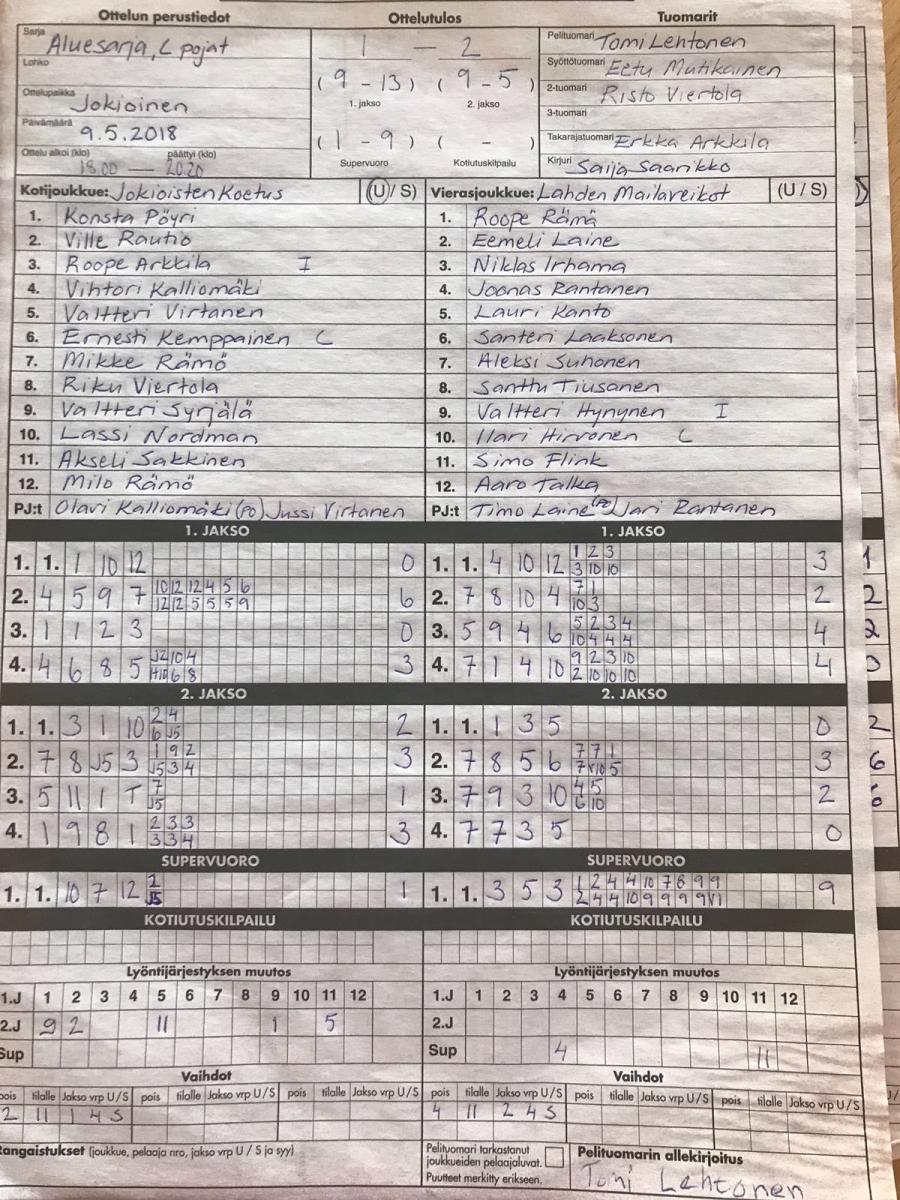 Ottelun perustiedot Ottelutulos Tuomarit
Sarja Aluesarja, C pojat
Lohko
Ottelupaikka Jokioinen
Päivämäärä 9.5.2018
Ottelu alkoi (klo) päättyi (klo)
18.00 — 20.20
1 — 2
(9 - 13) (9 - 5)
1. jakso 2. jakso
(1 - 9) ( - )
Supervuoro Kotiutuskilpailu
Pelituomari Tomi Lehtonen
Syöttötuomari Eetu Mutikainen
2-tuomari Risto Viertola
3-tuomari
Takarajatuomari Erkka Arkkila
Kirjuri Saija Saarikko
Kotijoukkue: Jokioisten Koetus (U / S)
1. Konsta Pöyri
2. Ville Rautio
3. Roope Arkkila I
4. Vihtori Kalliomäki
5. Valtteri Virtanen
6. Ernesti Kemppainen C
7. Mikke Rämö
8. Riku Viertola
9. Valtteri Syrjälä
10. Lassi Nordman
11. Akseli Sakkinen
12. Milo Rämö
PJ:t Olavi Kalliomäki (PO) Jussi Virtanen
Vierasjoukkue: Lahden Mailaveikot (U / S)
1. Roope Rämä
2. Eemeli Laine
3. Niklas Irhama
4. Joonas Rantanen
5. Lauri Kanto
6. Santeri Laaksonen
7. Aleksi Suhonen
8. Santtu Tiusanen
9. Valtteri Hynynen I
10. Ilari Hirvonen C
11. Simo Flink
12. Aaro Talka
PJ:t Timo Laine (PO) Jari Rantanen
1. JAKSO
1. 1. 1 10 12 0
2. 4 5 9 7 10 12 12 4 5 6 6
12 12 5 5 5 9
3. 1 1 2 3 0
4. 4 6 8 5 J2 10 4 3
6 8
1. JAKSO
1. 1. 4 10 12 1 2 3 3
3 10 10
2. 7 8 10 4 7 1 2
10 3
3. 5 9 4 6 5 2 3 4 4
10 4 4 4
4. 7 1 4 10 9 2 3 10 4
2 10 10 10
2. JAKSO
1. 1. 3 1 10 2 4 2
6 J5
2. 7 8 J5 3 1 9 2 3
J5 3 4
3. 5 11 1 T 7 1
J5
4. 1 9 8 1 2 3 3 3
3 3 4
2. JAKSO
1. 1. 1 3 5 0
2. 7 8 5 6 7 7 1 3
7 10 5
3. 7 9 3 10 4 5 2
6 10
4. 7 7 3 5 0
SUPERVUORO
1. 1. 10 7 12 1
J5
SUPERVUORO
1. 1. 3 5 3 1 2 4 4 10 7 8 9 9 9
2 4 4 10 9 9 9 9
KOTIUTUSKILPAILU
KOTIUTUSKILPAILU
Lyöntijärjestyksen muutos
1.J 1 2 3 4 5 6 7 8 9 10 11 12
2.J 9 2 11 1 5
Sup
Lyöntijärjestyksen muutos
1.J 1 2 3 4 5 6 7 8 9 10 11 12
2.J
Sup 4 11
Vaihdot
pois tilalle Jakso vrp U/S pois tilalle Jakso vrp U/S pois tilalle Jakso vrp U/S
2 11 1 4 S
Vaihdot
pois tilalle Jakso vrp U/S pois tilalle Jakso vrp U/S pois tilalle Jakso vrp U/S
4 11 2 4 S
Rangaistukset (joukkue, pelaaja nro, jakso vrp U / S ja syy)
Pelituomari tarkastanut
joukkueiden pelaajaluvat.
Puutteet merkitty erikseen.
Pelituomarin allekirjoitus
Tomi Lehtonen